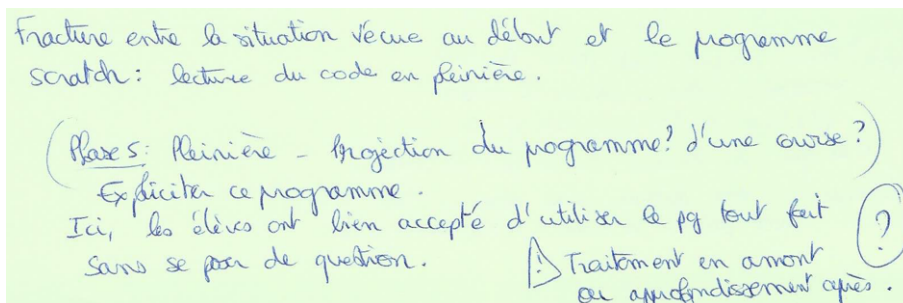 Fracture entre la situation vécue au début et le programme
scratch : lecture du code en pleinière.
(Phase 5 : Pleinière - Projection du programme ? d'une course ?)
Expliciter ce programme.
Ici, les élèves ont bien accepté d'utiliser le pg tout fait
sans se poser de question.
?
! Traitement en amont
ou approfondissement après.